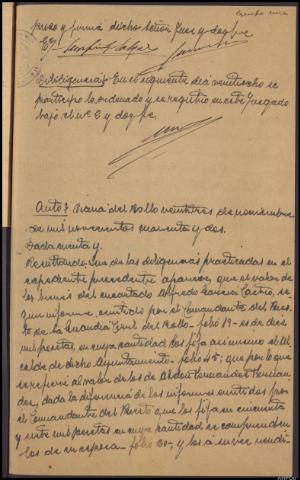 preso y firma dicho Señor Juez y doy fe
Diligencia = En el siguiente día veintiocho se
participó lo ordenado y se registró en este Juzgado
bajo el nº 6 y doy fe.
Auto = Viana del Bollo veintitres de noviembre
de mil novecientos cuarenta y dos.
Dada cuenta y.
Resultando: Que de las diligencias practicadas en el
expediente precedente aparece, que el valor de
los bienes del encartado Alfredo García Castro, se-
gun informe emitido por el Comandante del Pues-
to de la Guardia Civil del Bollo - folio 19 - es de diez
mil pesetas, en cuya cantidad los fija asimismo el Al-
calde de dicho Ayuntamiento - folio 45; que por lo que
se refiere al valor de los de
dez, dada la diferencia de los informes emitidos por
el Comandante del Puesto que los fija en cincuenta
y siete mil pesetas en cuya cantidad se comprenden
los de su esposa - folio 20 - y los